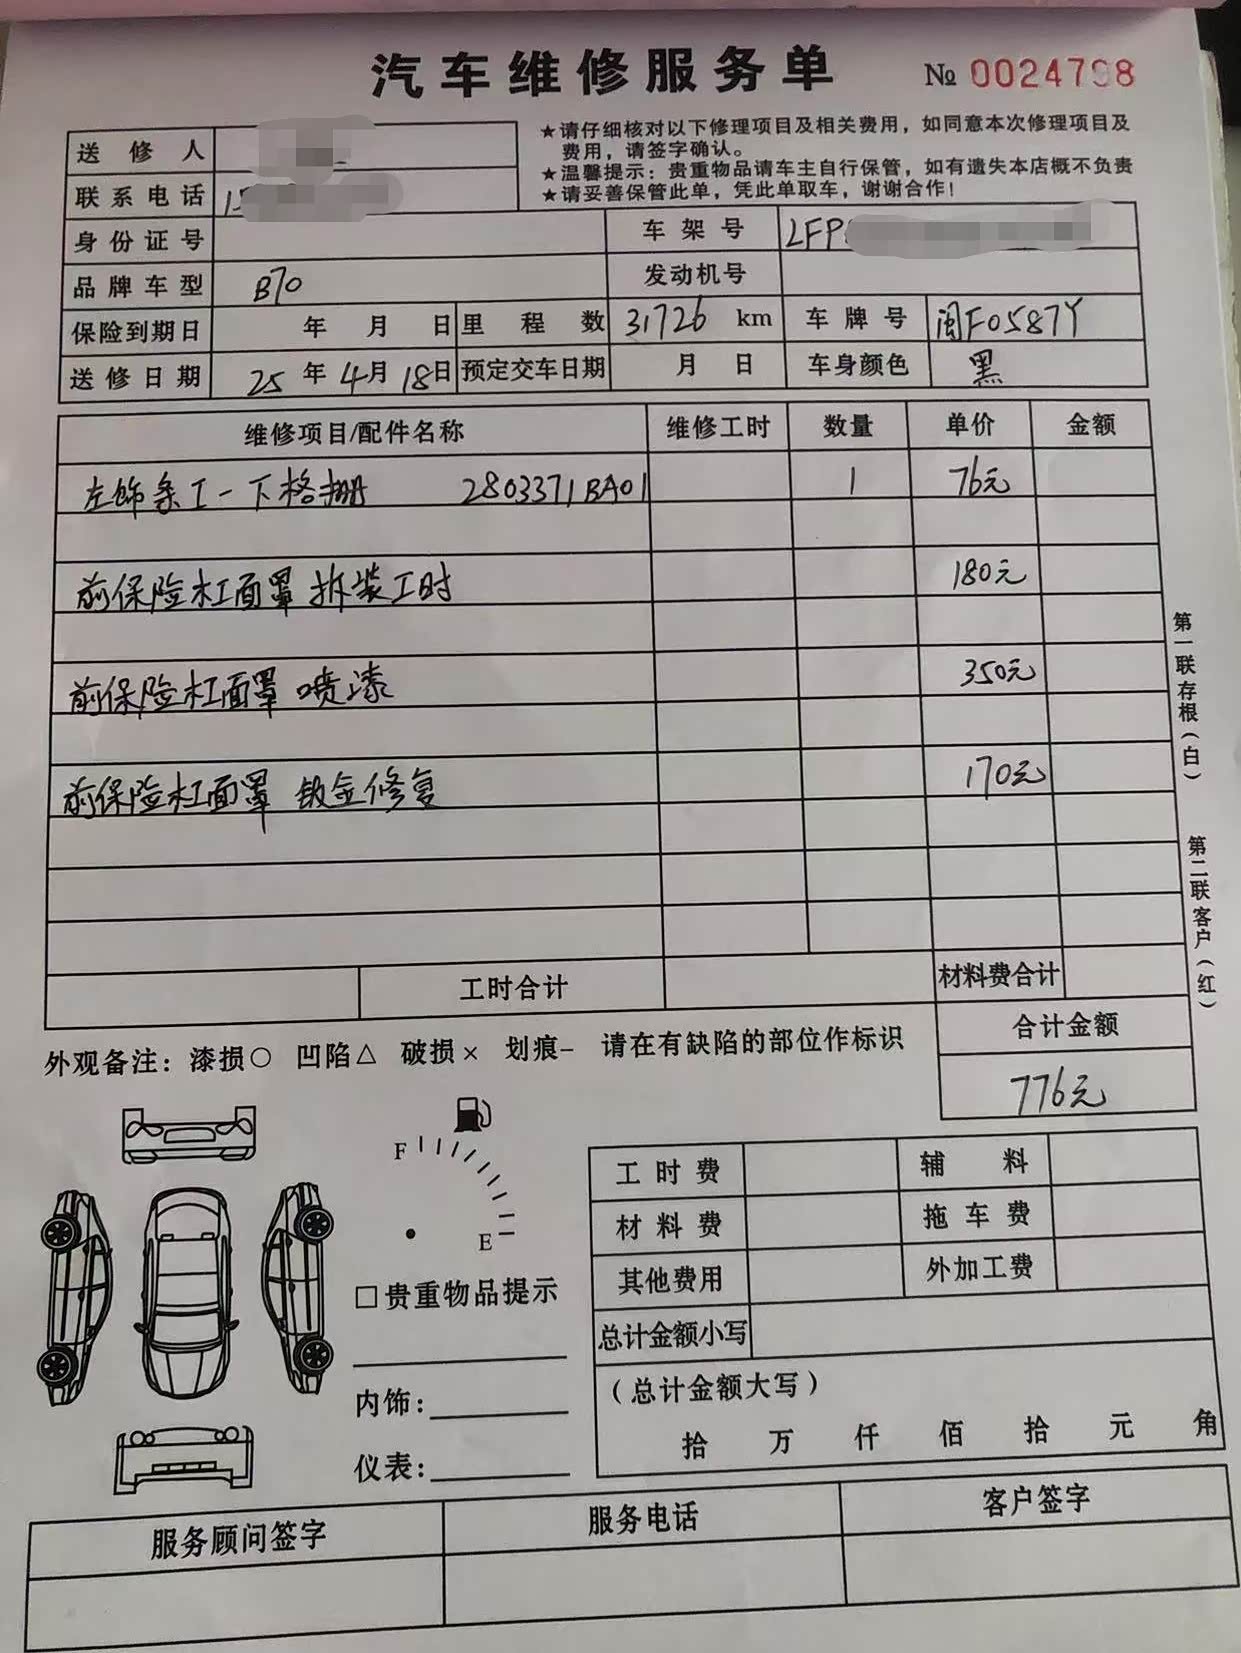 汽车维修服务单 № 0024798
★请仔细核对以下修理项目及相关费用，如同意本次修理项目及
费用，请签字确认。
★温馨提示：贵重物品请车主自行保管，如有遗失本店概不负责
★请妥善保管此单，凭此单取车，谢谢合作！
送修人
联系电话 15
身份证号 车架号 LFP
品牌车型 B70 发动机号
保险到期日 年 月 日 里程数 31726 km 车牌号 闽F0587Y
送修日期 25年4月18日 预定交车日期 月 日 车身颜色 黑
维修项目/配件名称 维修工时 数量 单价 金额
左饰条工-下格栅 2803371BA01 1 76元
前保险杠面罩 拆装工时 180元
前保险杠面罩 喷漆 350元
前保险杠面罩 钣金修复 170元
工时合计 材料费合计
合计金额
776元
第一联存根（白）
第二联客户（红）
外观备注：漆损○ 凹陷△ 破损× 划痕- 请在有缺陷的部位作标识
F
E
□贵重物品提示
内饰:
仪表:
工时费 辅料
材料费 拖车费
其他费用 外加工费
总计金额小写
（总计金额大写）
拾 万 仟 佰 拾 元 角
服务顾问签字 服务电话 客户签字